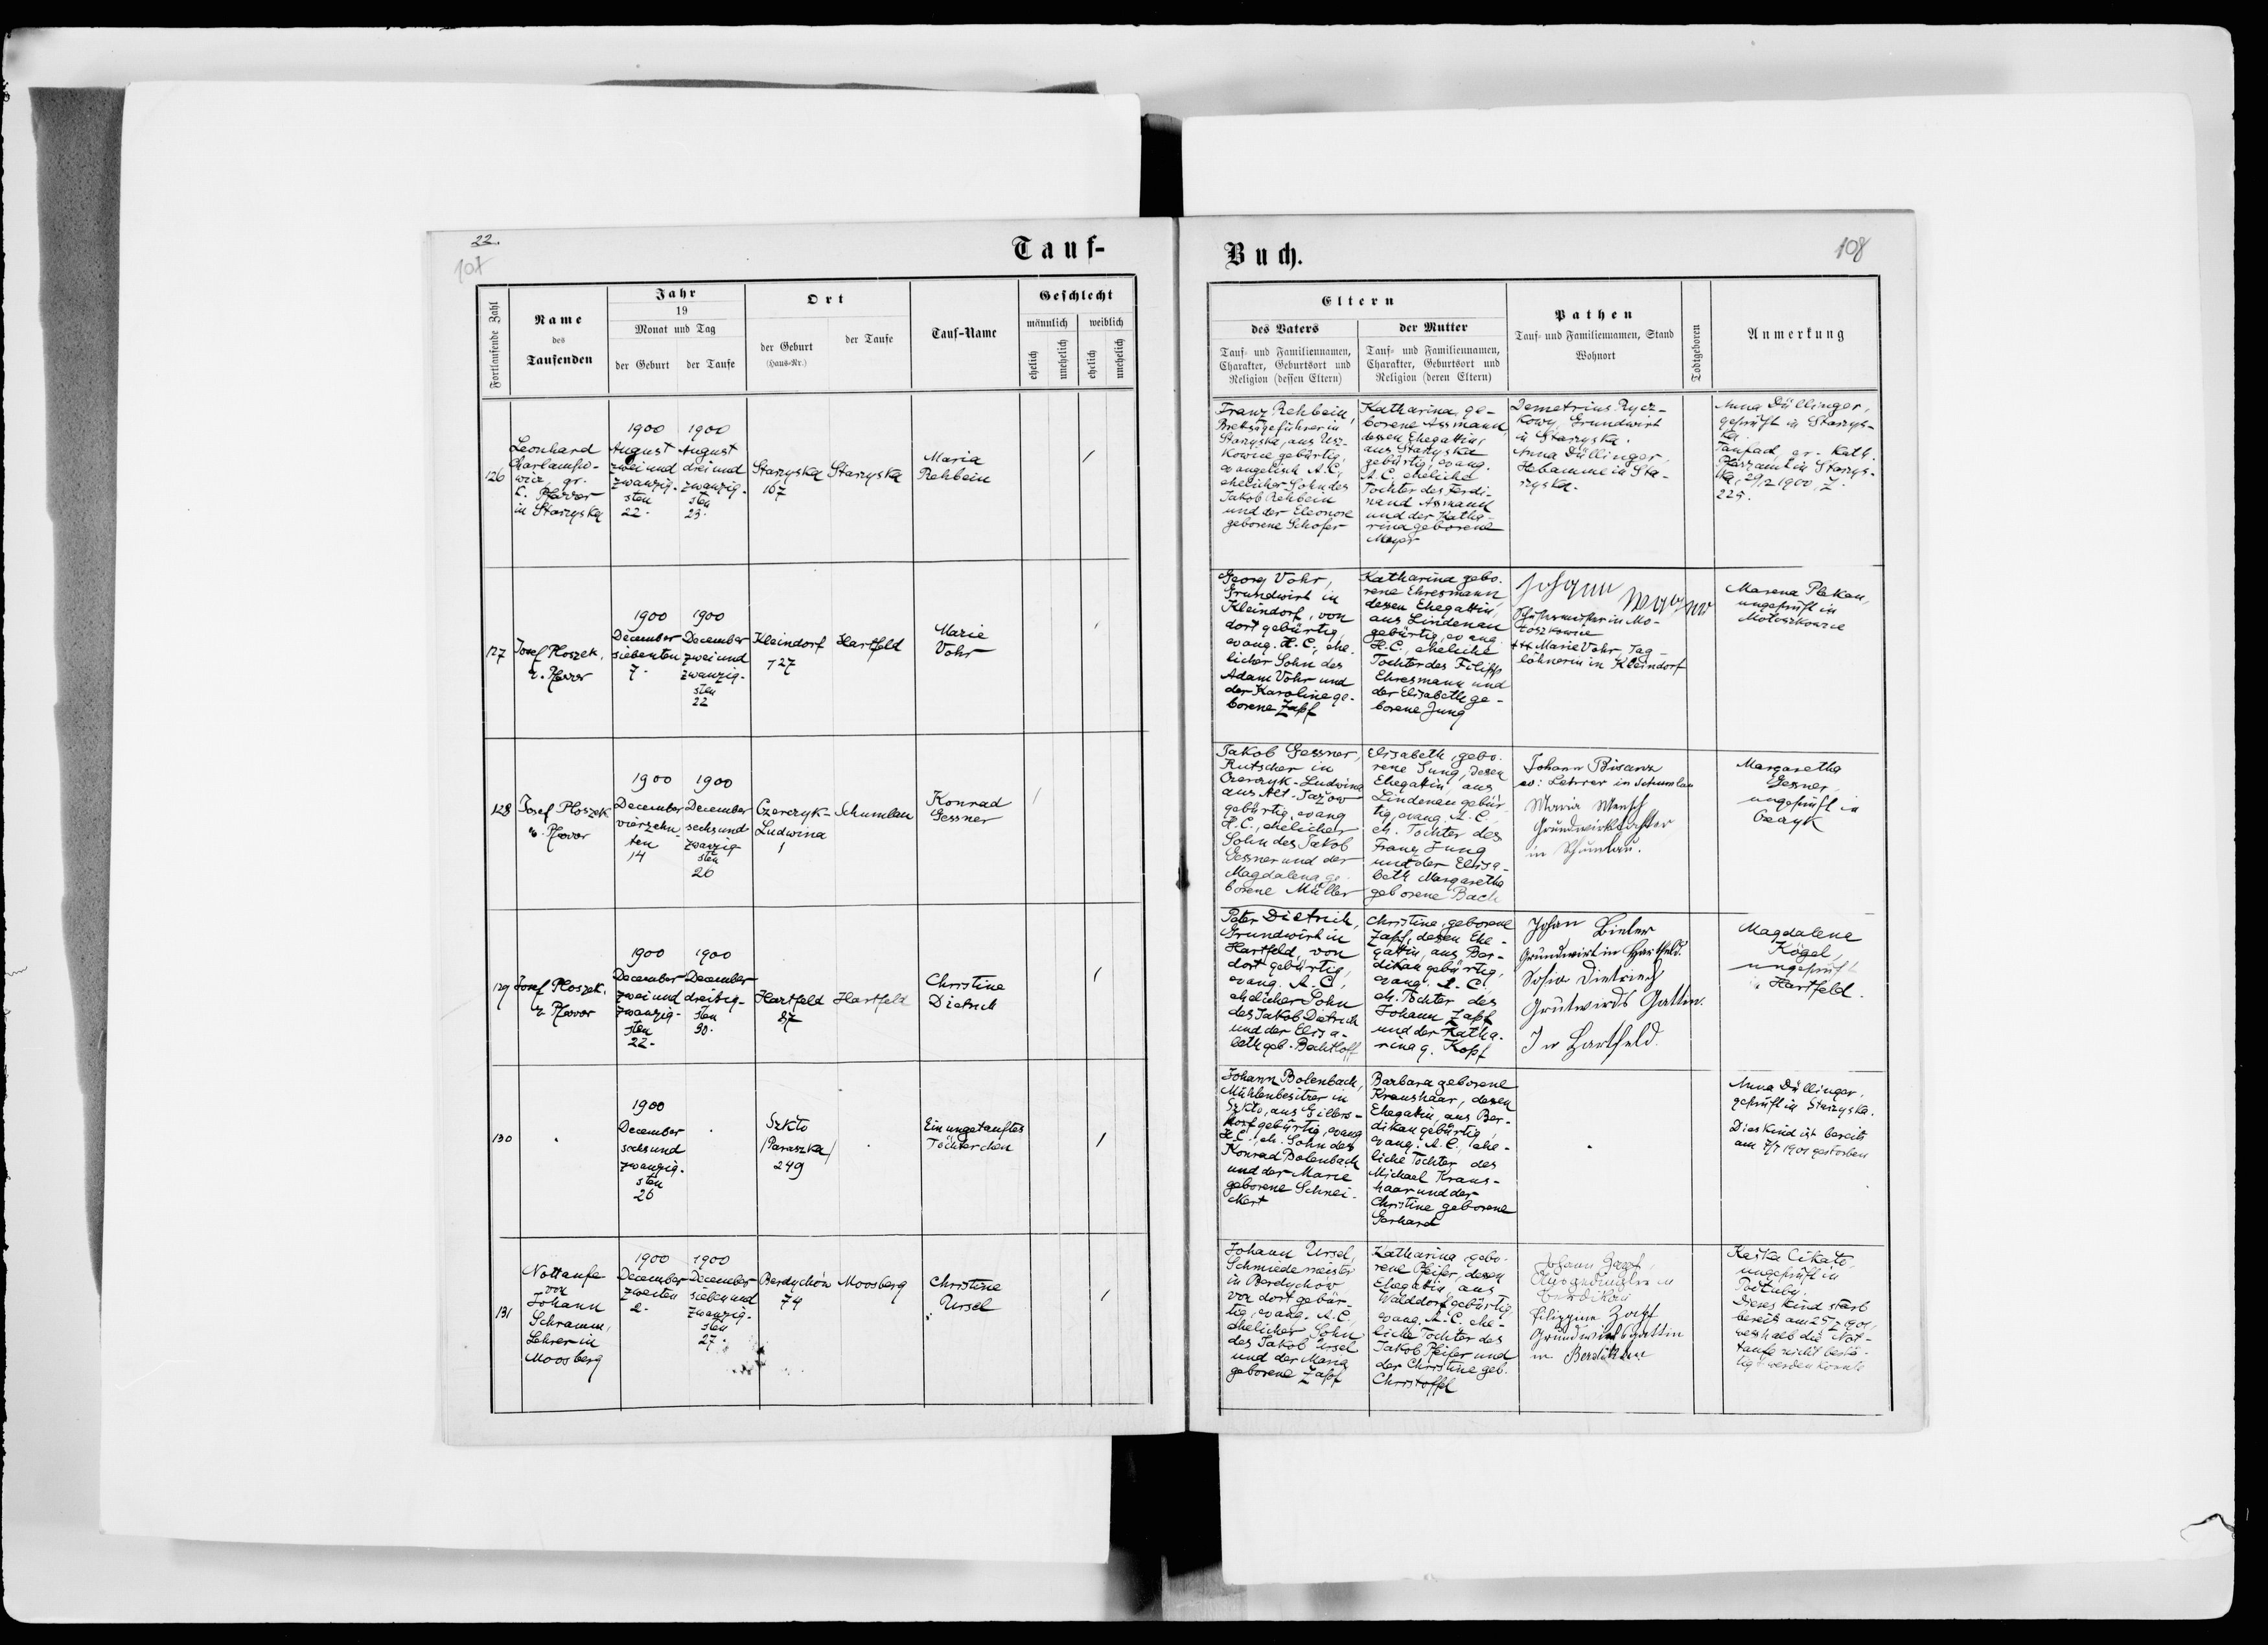 22.
107
Tauf-
Fortlaufende Zahl
Name
des
Taufenden
Jahr
19
Monat und Tag
der Geburt
der Taufe
Ort
der Geburt
(Haus-Nr.)
der Taufe
Tauf-Name
Geschlecht
männlich
weiblich
ehelich
unehelich
ehelich
unehelich
126
Leonhard
Charlampo-
wicz, gr.
C. Pfarrer
in Starzyska
1900
August
zwei und
zwanzig-
sten
22.
1900
August
drei und
zwanzig-
sten
23.
Starzyska
167
Starzyska
Maria
Rehbein
127
Josef Ploszek,
Pfarrer
1900
December
siebenten
7.
1900
December
zwei und
zwanzig-
sten
22
Kleindorf
127
Hartfeld
Marie
Vohr
128
Josef Ploszek
Pfarrer
1900
December
vierzehn-
ten
14
1900
December
sechsund
zwanzig-
sten
26
Czerczyk-
Ludwina
1
Schumlau
Konrad
Gessner
129
Josef Ploszek,
Pfarrer
1900
December
zwei und
zwanzig-
sten
22.
1900
December
dreissig-
sten
30.
Hartfeld
87
Hartfeld
Christine
Dietrich
130
1900
December
sechsund
zwanzig-
sten
26
Szkto
/Paraszka/
249
Ein ungetauftes
Töchterchen
131
Nottaufe
von
Johann
Schramm,
Lehrer in
Moosberg
1900
December
zweiten
2.
1900
December
sieben und
zwanzig-
sten
27.
Berdychów
74
Moosberg
Christine
Ursel
Buch.
108
Eltern
des Vaters
Tauf- und Familiennamen,
Charakter, Geburtsort und
Religion (dessen Eltern)
der Mutter
Tauf- und Familiennamen,
Charakter, Geburtsort und
Religion (deren Eltern)
Pathen
Tauf- und Familiennamen, Stand
Wohnort
Todtgeboren
Anmerkung
Franz Rehbein,
Bretsägeführer in
Starzyska, aus Usz-
kowce gebürtig,
evangelisch A.C.,
ehelicher Sohn des
Jakob Rehbein
und der Eleonore
geborene Schofer
Katharina, ge-
borene Assmann,
dessen Ehegattin,
aus Starzyska
gebürtig, evang.
A.C. eheliche
Tochter des Ferdi-
nand Assmann
und der Katha-
rina geborene
Mayer
Demetrius Rycz-
kowy, Grundwirt
in Starzyska.
Anna Düllinger,
Hebamme in Sta-
rzyska.
Anna Düllinger,
geprüft in Starzys-
ka.
gr. Kath.
Pfarramt in Starzys-
ka, 29/12 1900, Z.
225.
Georg Vohr,
Grundwirt in
Kleindorf, von
dort gebürtig,
evang. H.C., ehe-
licher Sohn des
Adam Vohr und
der Karoline ge-
borene Zapf
Katharina gebo-
rene Ehresmann
dessen Ehegattin,
aus Lindenau
gebürtig, evang.
H.C., eheliche
Tochter des Filipp
Ehresmann und
der Elisabeth ge-
borene Jung
Johann
in Mo-
loszkowce
+++ Marie Vohr, Tag-
löhnerin in Kleindorf
Marena Plekan,
ungeprüft in
Moloszkowce
Jakob Gessner,
Kutscher in
Czerczyk-Ludwina
aus Alt-Jażow
gebürtig, evang
H.C., ehelicher
Sohn des Jakob
Gessner und der
Magdalena ge-
borene Müller
Elisabeth, gebo-
rene Jung, dessen
Ehegattin, aus
Lindenau gebür-
tig, evang. A.C.,
eh. Tochter des
Franz Jung
und der Elisa-
beth Margaretha
geborene Bach
Johann Bisanz
ev: Lehrer in Schumlau
Maria Mensch
Grundwirtstochter
in Schumlau.
Margaretha
Gessner,
ungeprüft in
Peter Dietrich,
Grundwirt in
Hartfeld, von
dort gebürtig,
evang. A.C.,
ehelicher Sohn
des Jakob Dietrich
und der Elisa-
beth geb. Bechtloff
Christine, geborene
Zapf, dessen Ehe-
gattin, aus Ber-
dikau gebürtig,
evang. A.C.,
eh. Tochter des
Johann Zapf
und der Katha-
rina g. Kopf
Johan Bieler
Grundwirt in Hartfeld.
Sofia Dietrich
Grutwirds Gattin.
In Hartfeld.
Magdalena
Kögel,
ungeprüft
in Hartfeld.
Johann Bolenbach,
Mühlenbesitzer in
Szkto, aus Gillers-
dorf gebürtig, evang
H.C., eh. Sohn des
Konrad Bolenbach
und der Marie
geborene Schnei-
Barbara geborene
Kraushaar, dessen
Ehegattin, aus Ber-
dikau gebürtig,
evang. A.C., ehe-
liche Tochter des
Michael Kraus-
haar und der
Christine geborene
Gerhard
Anna Düllinger,
geprüft in Starzyska.
Dies Kind ist bereits
am 7/1 1901 gestorben
Johann Ursel,
Schmiedemeister
in Berdychów
von dort gebür-
tig, evang. A.C.,
ehelicher Sohn
des Jakob Ursel
und der Maria
geborene Zapf
Katharina gebo-
rene Pfeifer, dessen
Ehegattin, aus
Walddorf gebürtig,
evang. A.C. ehe-
liche Tochter des
Jakob Pfeifer und
der Christine geb.
Christoffel
Johann Zapf,
Ausgedingler in
Berdikau
Filippine Zapf
Grundwirts Gattin
in Berdikau
Kaska Cikalo,
ungeprüft in
Dieses Kind starb
bereits am
weshalb die Not-
taufe nicht bestä-
tigt werden konnte